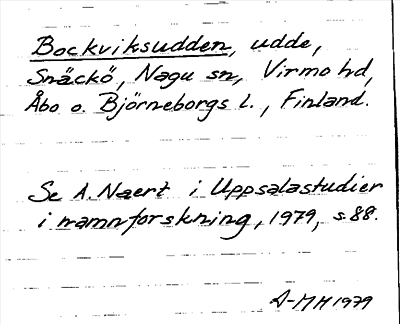 Bockviksudden, udde,
Snäckö, Nagu sn, Virmo hd,
Åbo o. Björneborgs l., Finland.
Se A. Naert i Uppsalastudier
i namnforskning, 1979, s. 88.
A-MH 1979